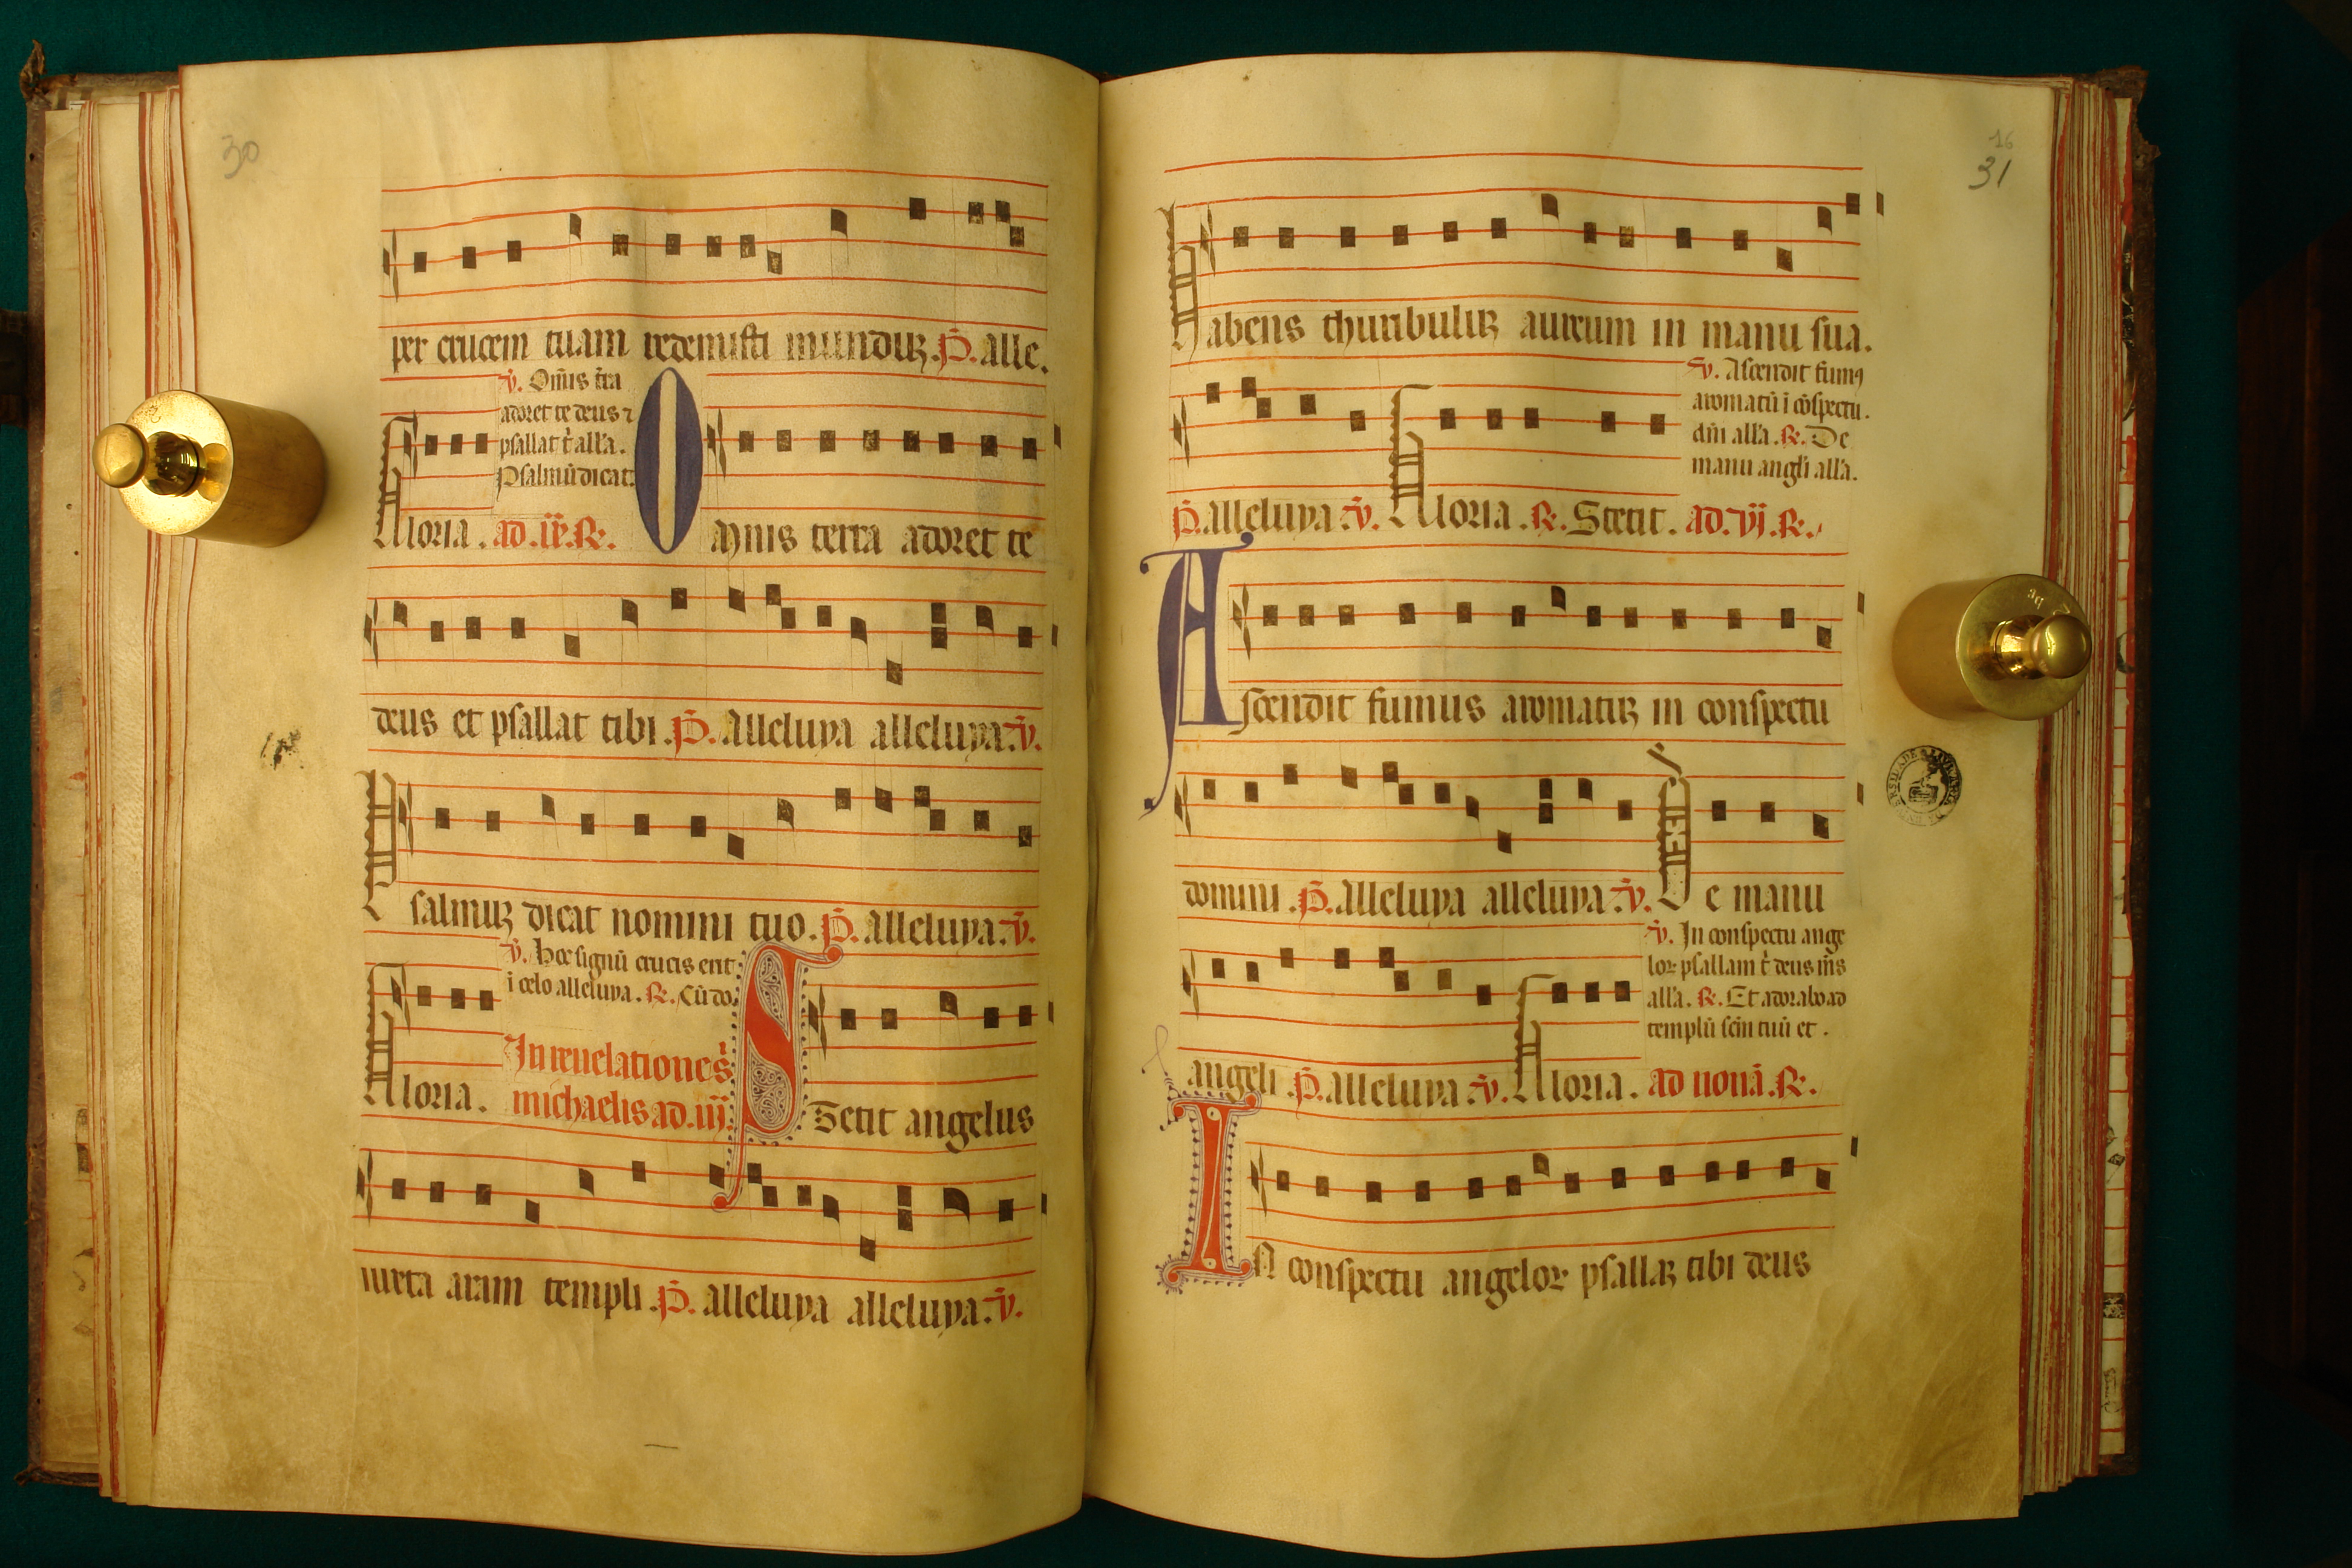 30
per crucem tuam redemisti munduꝫ. P̄. alle.
v̄. Om̄is t̄ra
adoret te deus ⁊
psallat t̄ all'a.
Psalmū dicat.
Gloria. ad .ix. ℟.
Omnis terra adoret te
deus et psallat tibi. P̄. Alleluya alleluya. v̄.
Psalmuꝫ dicat nomini tuo. P̄. alleluya. v̄.
v̄. Hoc signū crucis erit
i celo alleluya. ℟. Cū do
Gloria.
In reuelatione s̄
michaelis ad .iij.
Stetit angelus
iuxta aram templi. P̄. alleluya alleluya. v̄.
16
31
Habens thuribuluꝫ aureum in manu sua.
v̄. Ascendit fumꝰ
aromatū i cōspectu.
dn̄i all'a. ℟. De
manu angl'i all'a.
P̄. alleluya v̄. Gloria. ℟. Stetit. ad. vj. ℟.
Ascendit fumus aromatuꝫ in conspectu
domini. P̄. Alleluya alleluya. v̄. De manu
v̄. In conspectu ange
loꝝ psallam t̄ deus m̄s
all'a. ℟. Et adorabo ad
templū scm̄ tuū et.
angeli. P̄. alleluya v̄. Gloria. ad nonā. ℟.
In conspectu angeloꝝ psallaꝫ tibi deus